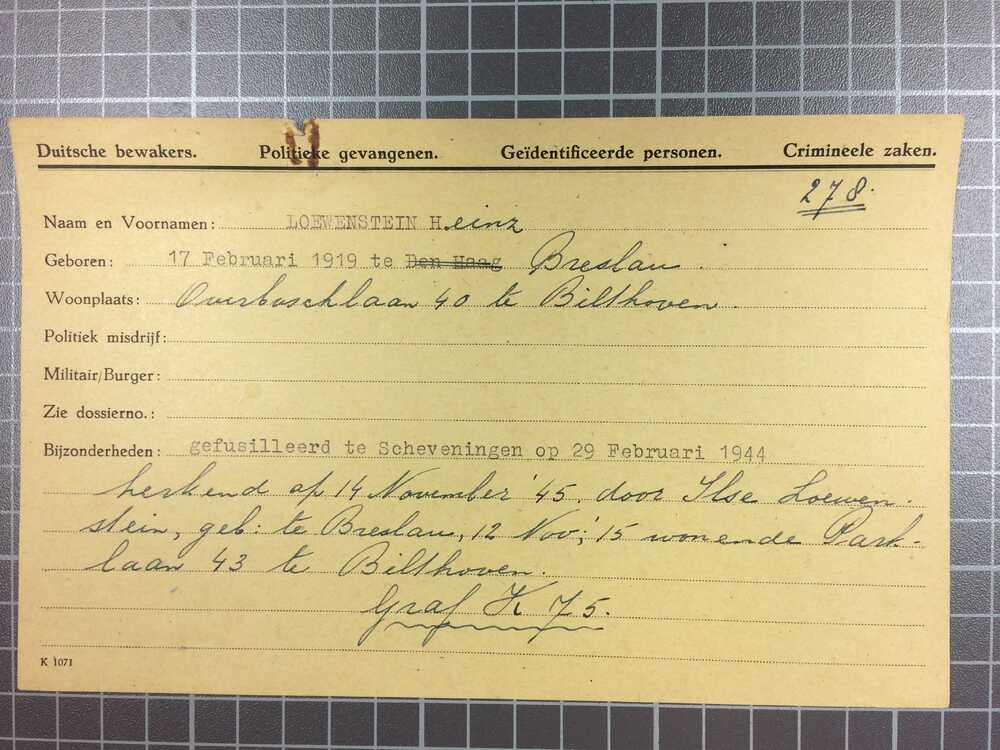 Duitsche bewakers. Politieke gevangenen. Geïdentificeerde personen. Crimineele zaken.
278.
Naam en Voornamen: LOEWENSTEIN H.einz
Geboren: 17 Februari 1919 te Den Haag Breslau.
Woonplaats: Overboschlaan 40 te Bilthoven.
Politiek misdrijf:
Militair/Burger:
Zie dossierno.:
Bijzonderheden: gefusilleerd te Scheveningen op 29 Februari 1944
herkend op 14 November '45. door Ilse Loewen-
stein, geb: te Breslau, 12 Nov; '15 wonende Park-
laan 43 te Bilthoven.
Graf K 75.
K 1071